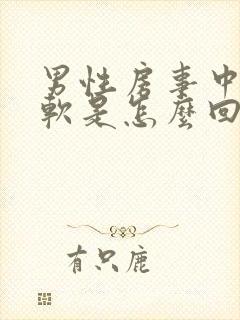 男性房事中
軟是怎麼回
有只鹿